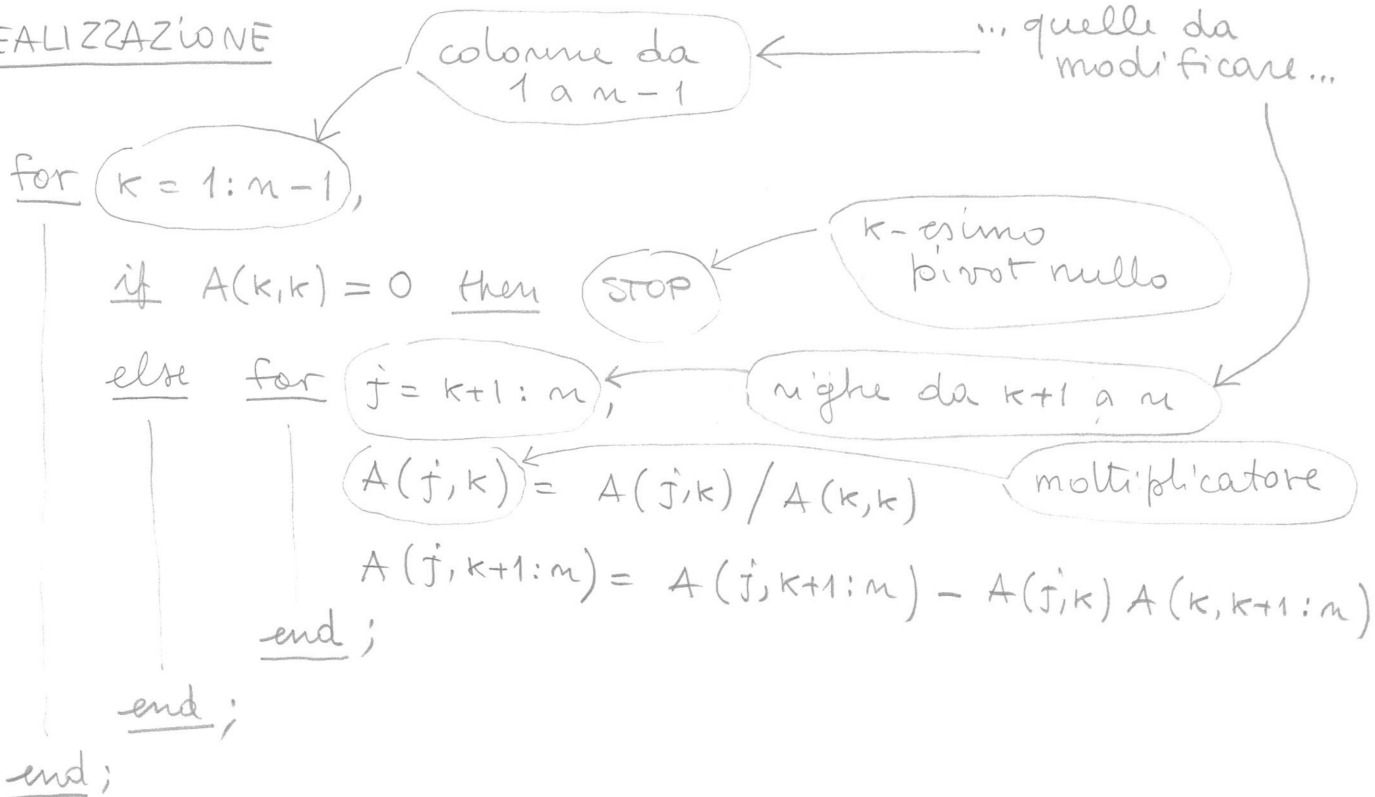 EALIZZAZIONE
colonne da
1 a n-1
... quelle da
modificare...
for k = 1:n-1,
k-esimo
pivot nullo
if A(k,k) = 0 then STOP
else for j = k+1 : n,
righe da k+1 a n
A(j,k) = A(j,k) / A(k,k)
moltiplicatore
A(j,k+1:n) = A(j,k+1:n) - A(j,k) A(k,k+1:n)
end;
end;
end;